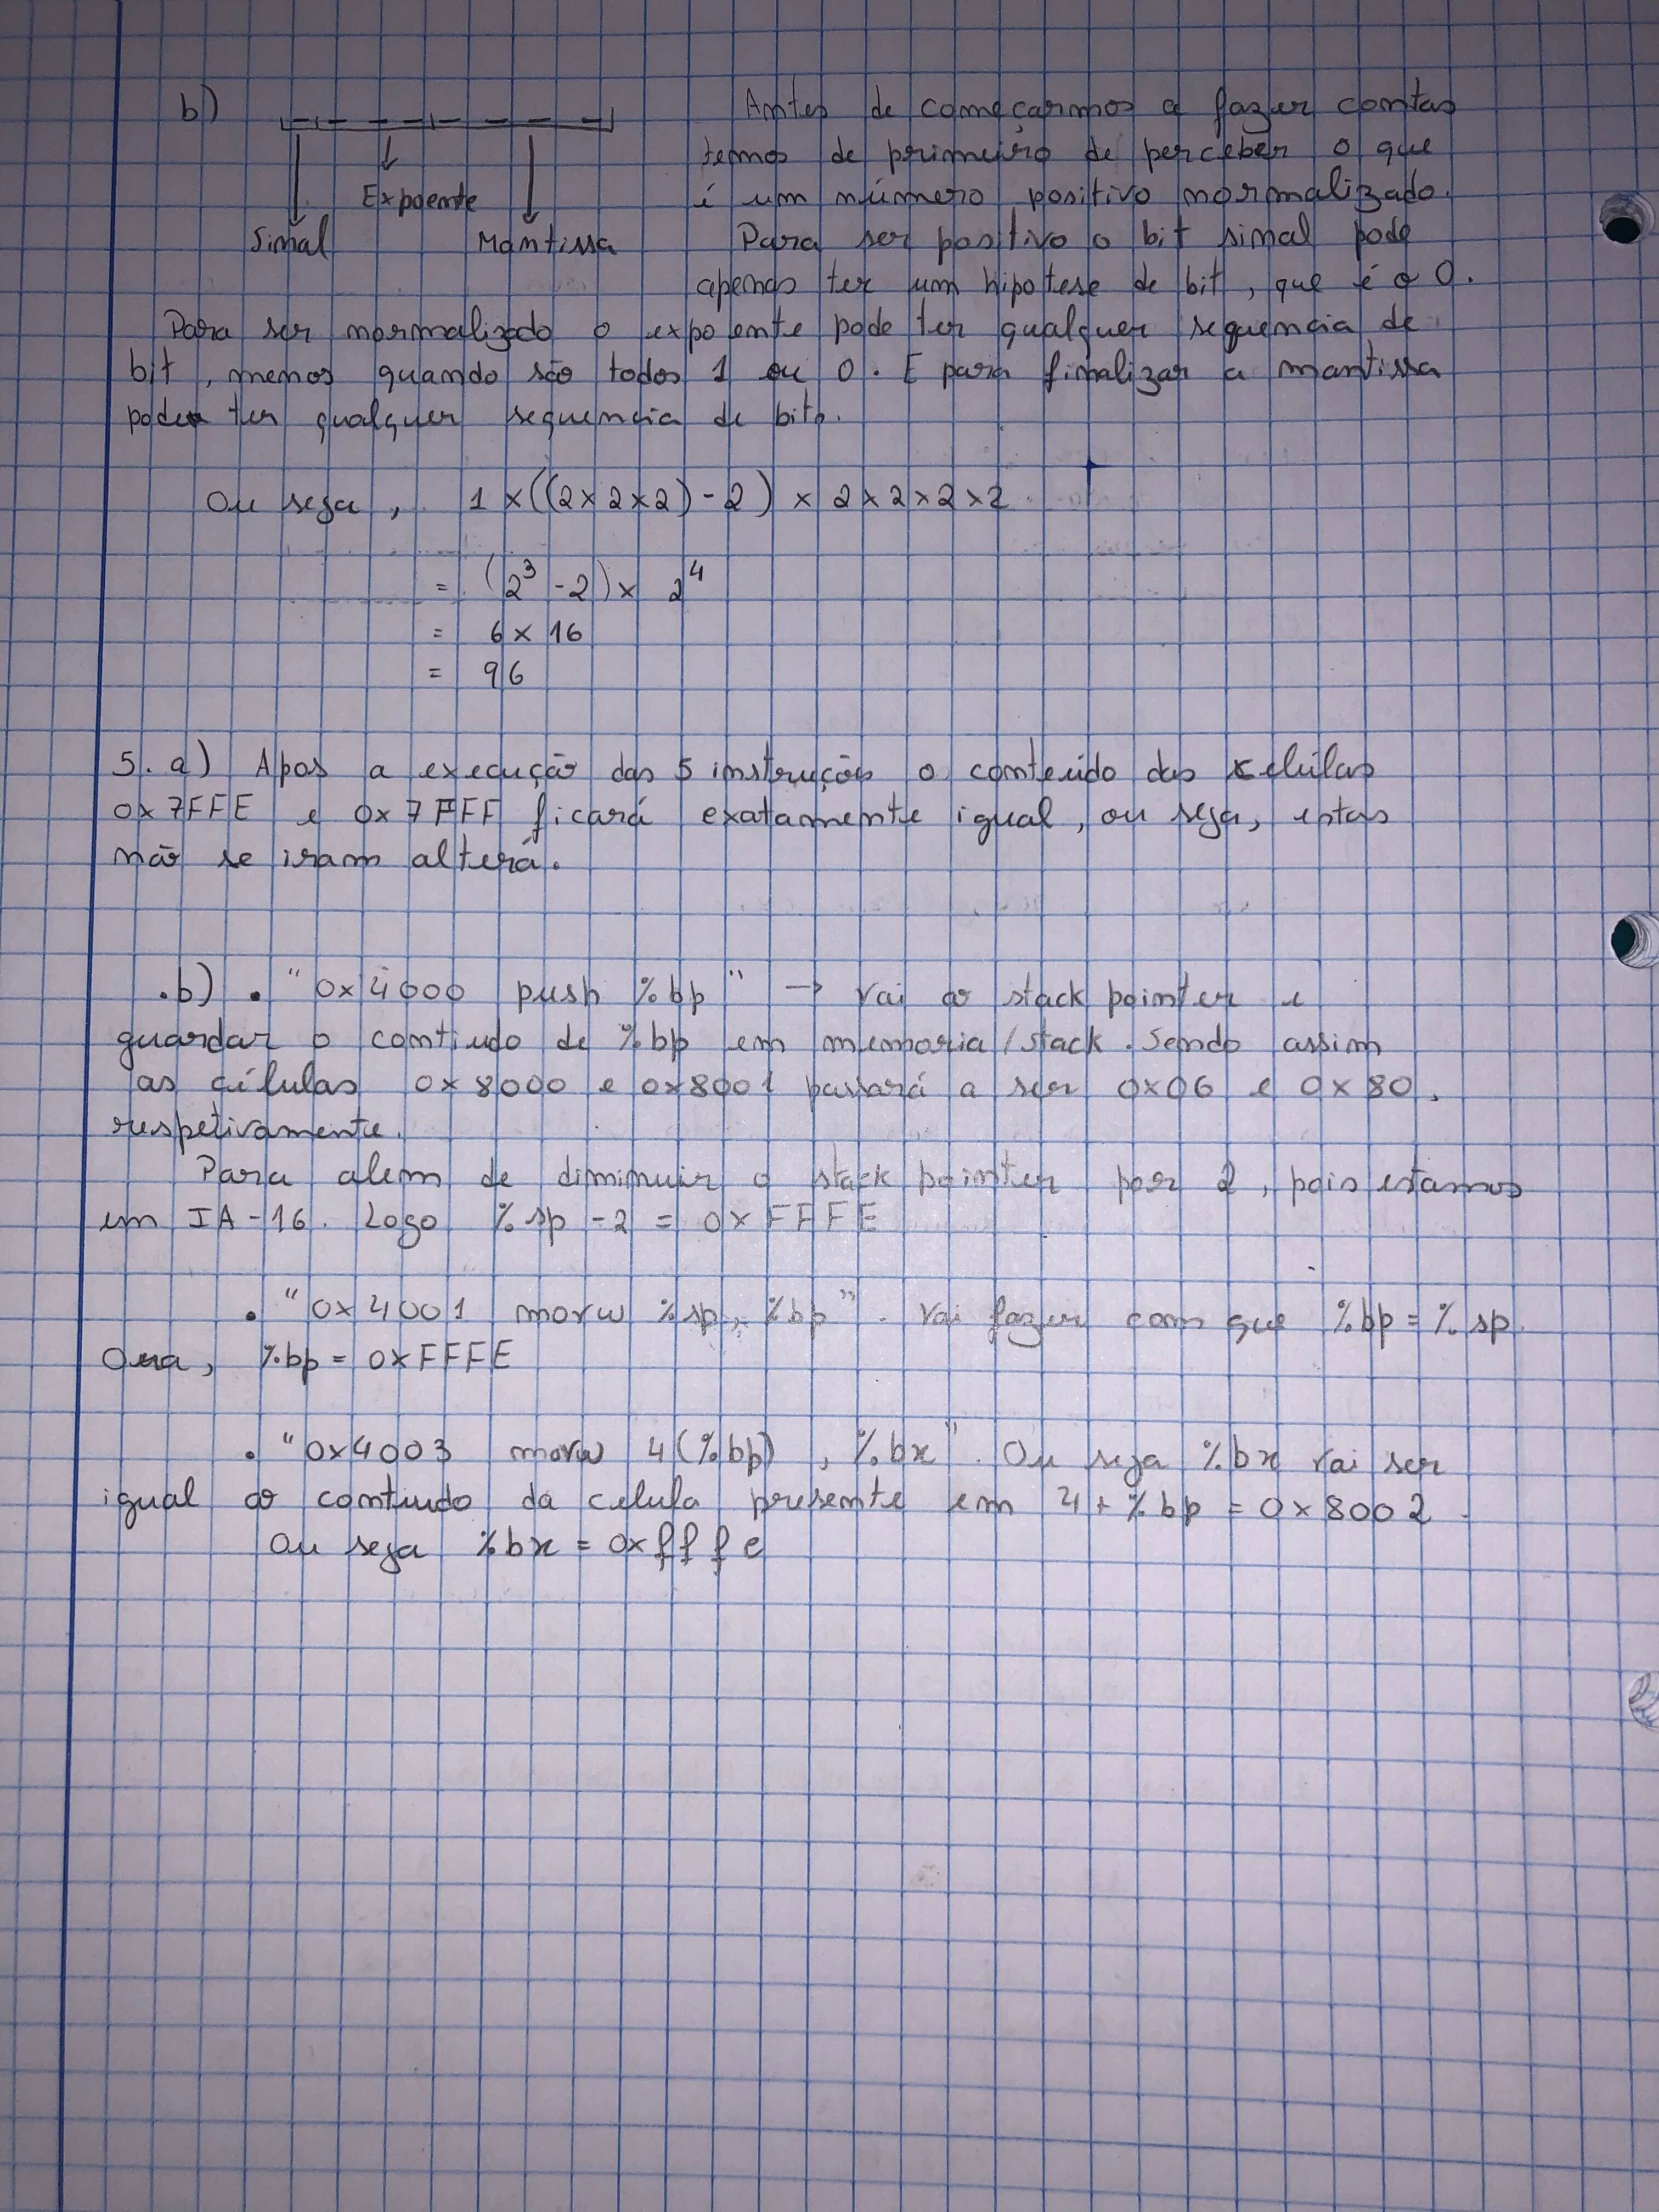 b)
Expoente
Sinal Mantissa
Antes de começarmos a fazer contas
temos de primeiro de perceber o que
é um número positivo normalizado.
Para ser positivo o bit sinal pode
apenas ter um hipotese de bit, que é o 0.
Para ser normalizado o expoente pode ter qualquer sequencia de
bit, menos quando são todos 1 ou 0. E para finalizar a mantissa
pode ter qualquer sequencia de bits.
Ou seja, 1 x ((2 x 2 x 2) - 2) x 2 x 2 x 2 x 2
= (2³ - 2) x 2⁴
= 6 x 16
= 96
5. a) Apos a execução das 5 instruções o conteúdo das células
0x7FFE e 0x7FFF ficará exatamente igual, ou seja, estas
não se iram alterá.
.b) • "0x4000 push %bp" → vai ao stack pointer e
guardar o contiudo de %bp em memoria/stack. Sendo assim
as células 0x8000 e 0x8001 passará a ser 0x06 e 0x80,
respetivamente.
Para alem de diminuir o stack pointer por 2, pois estamos
em IA-16. Logo %sp - 2 = 0xFFFE
• "0x4001 movw %sp, %bp". Vai fazer com que %bp = %sp.
Ora, %bp = 0xFFFE
• "0x4003 movw 4(%bp), %bx". Ou seja %bx vai ser
igual ao contiudo da celula presente em 4 + %bp = 0x8002.
Ou seja %bx = 0xfffe